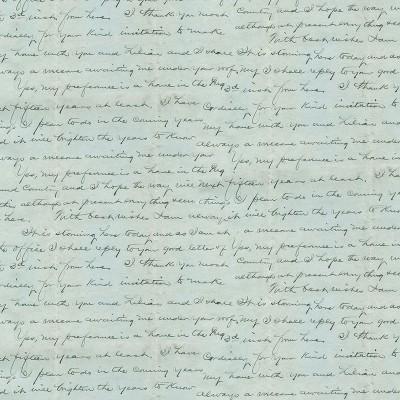 3d inst. from here. I thank you most
County, and I hope the way will
although at present everything seems
cordially for your kind invitation to make
With best wishes I am
my home with you and Lilian and I share
It is storming here today and as
always a means awaiting me under your roof,
my I shall reply to your good
Yes, my preference is a home in the
3d inst. from here. I thank you
next fifteen years at least. I have
cordially for your kind invitation to
I fear to do in the coming years
my home with you and Lilian and
and it will brighten the years to know
always a means awaiting me under
always a means awaiting me under your
Yes, my preference is a home in
Yes, my preference is a home in the
and County, and I hope the way will next fifteen years at least. I have
although at present everything seems things I fear to do in the coming years
is here. With best wishes I am and it will brighten the years to know
It is storming here today and as I am
always a means awaiting me under
the office I shall reply to your good letter of
Yes, my preference is a home
3d inst. from here. I thank you most
County, and I hope the way
although at present everything seems
cordially for your kind invitation to make
With best wishes I am
my home with you and Lilian and I share
It is storming here today and as
always a means awaiting me under your roof,
my I shall reply to your good
Yes, my preference is a home in the
3d inst. from here. I thank you
next fifteen years at least. I have
cordially for your kind invitation to
I fear to do in the coming years
my home with you and Lilian and
and it will brighten the years to know
always a means awaiting me